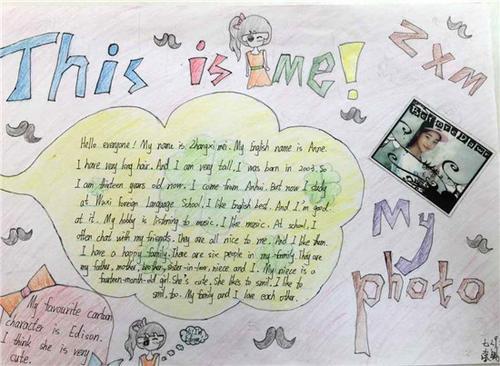 This is me!
ZXM
Hello everyone! My name is Zhangxi mei. My English name is Anne.
I have very long hair. And I am very tall. I was born in 2003. So
I am thirteen years old now. I come from Anhui. But now I study
at Wuxi Foreign Language School. I like English best. And I'm good
at it. My hobby is listening to music. I like music. At school, I
often chat with my friends. They are all nice to me. And I like them.
I have a happy family. There are six people in my family. They are
my father, mother, brother, sister-in-law, niece and I. My niece is a
fourteen-month-old girl. She's cute. She likes to smil. I like to
smil, too. My family and I love each other.
My
photo
My favourite cartoon
character is Edison.
I think she is very
cute.